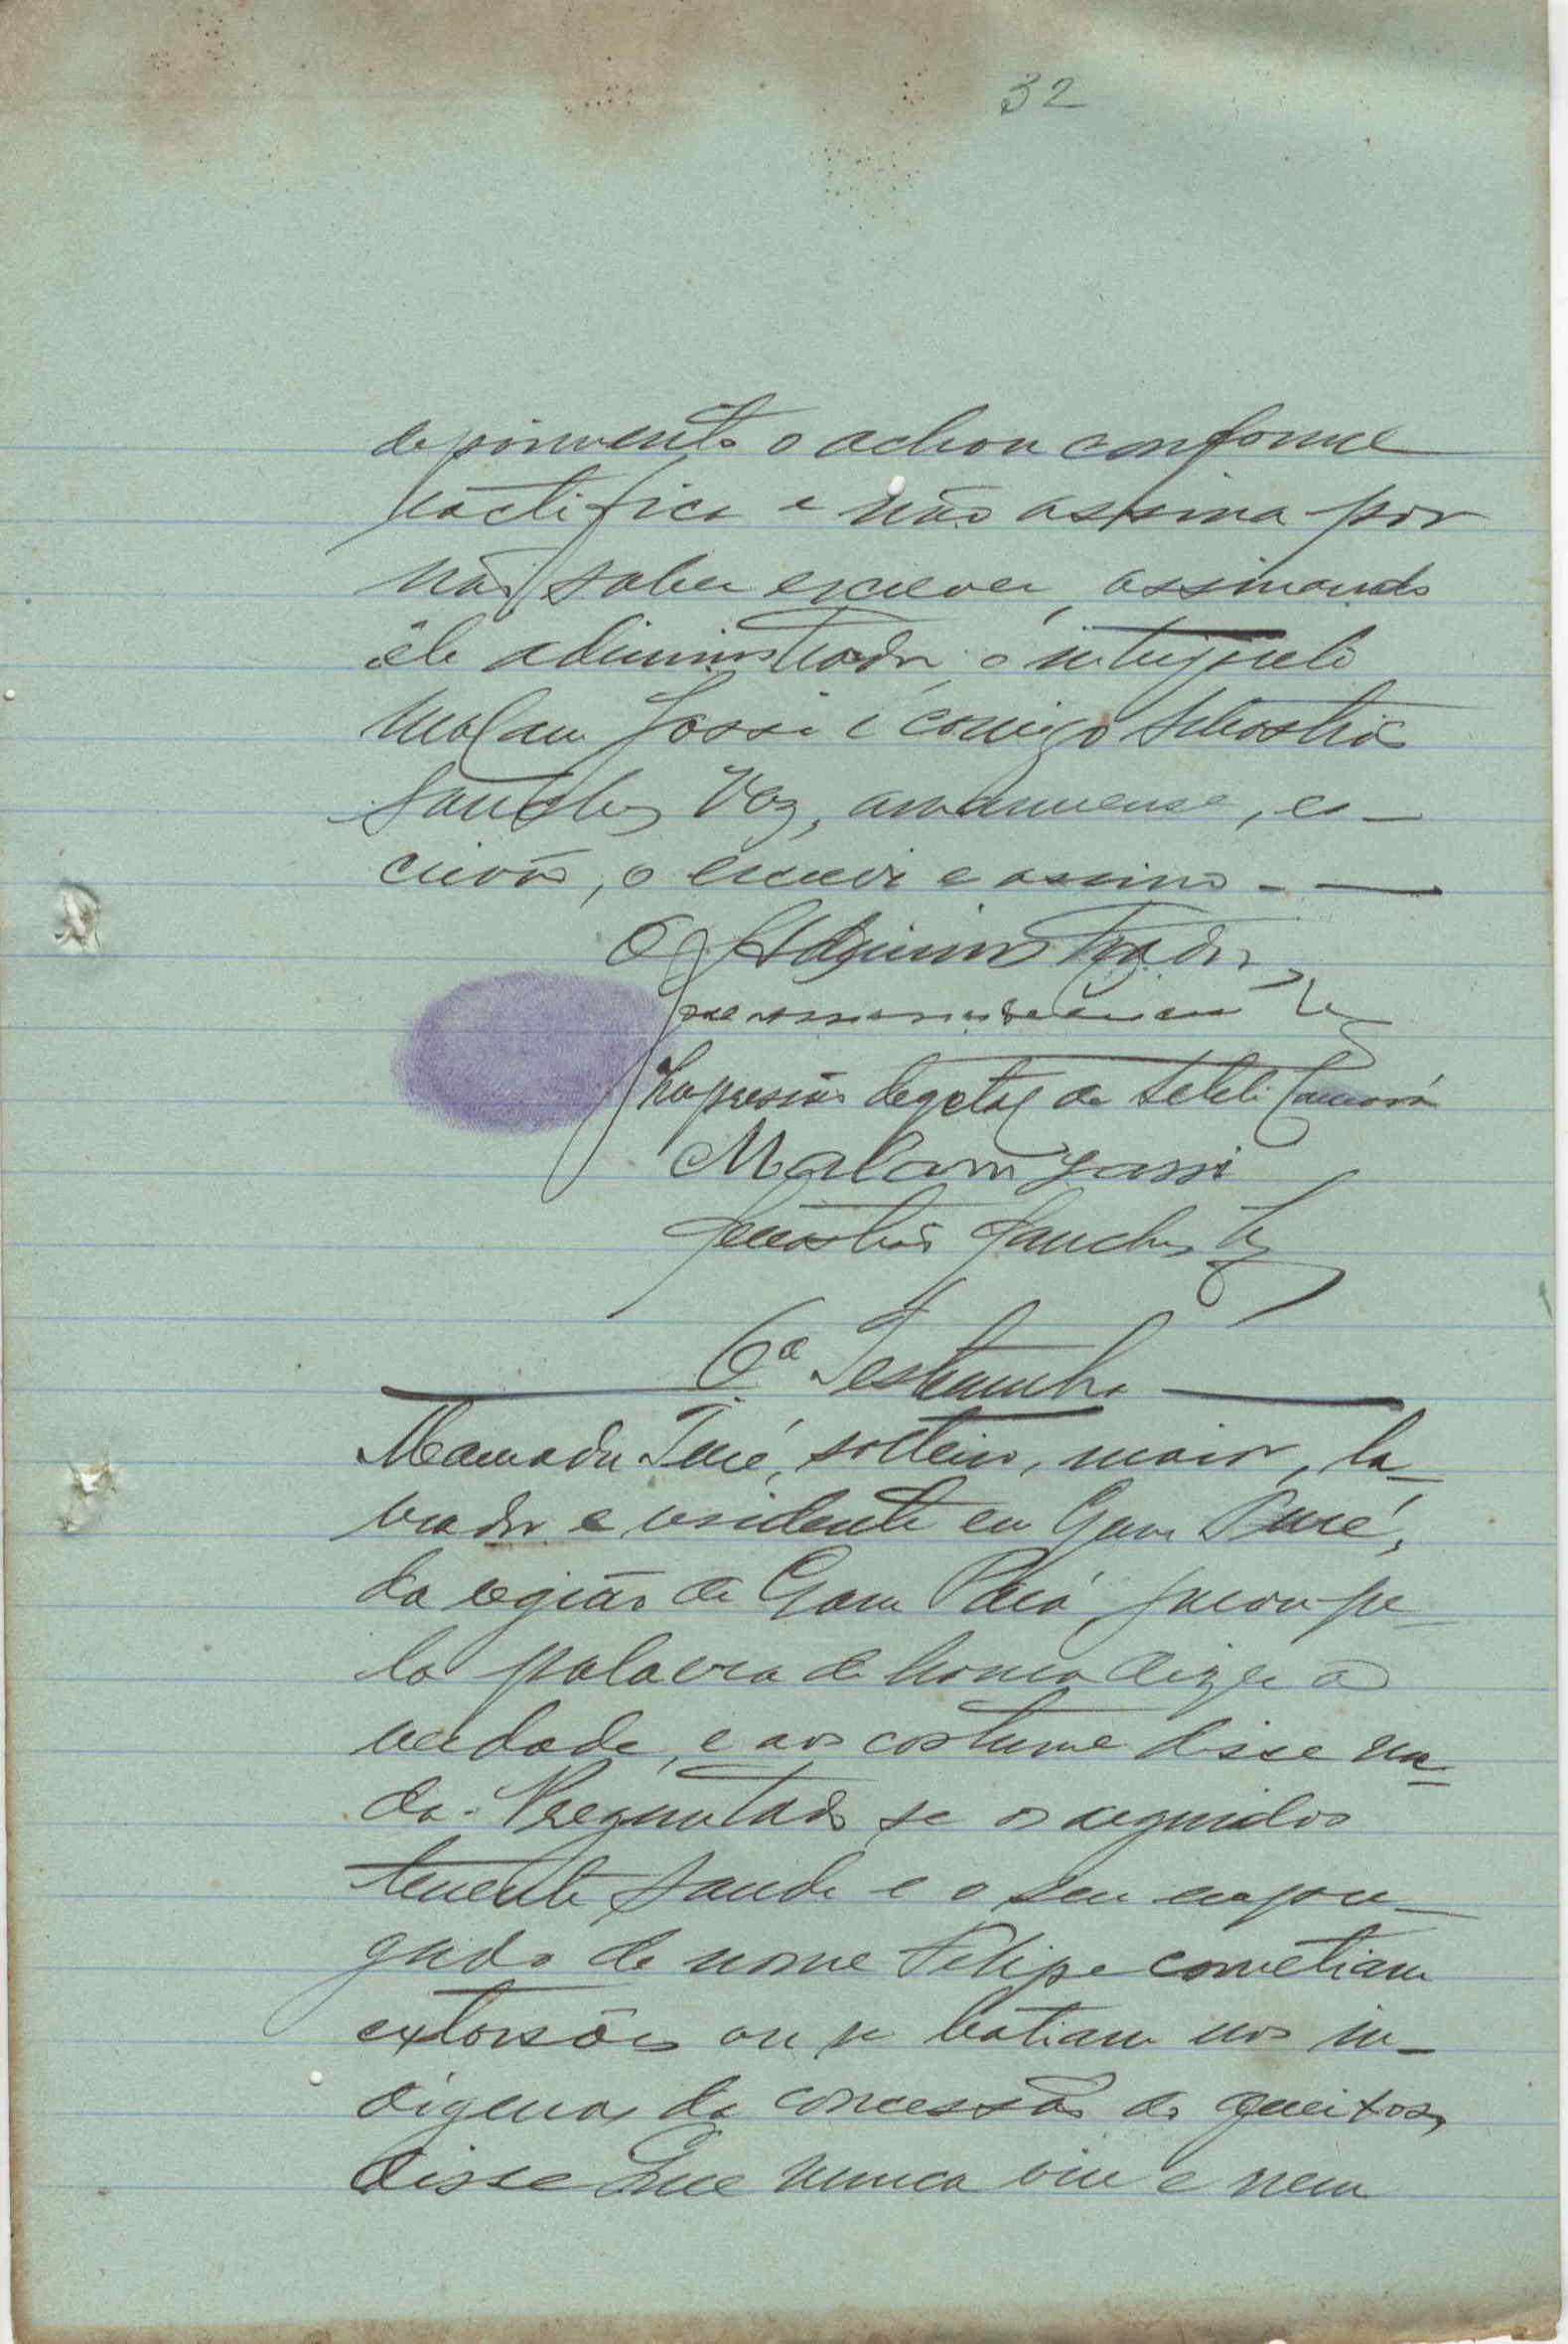 32
depoimento o achou conforme
ractifica e não assina por
não saber escrever, assinando
êle administrador, o intérprete
Malam Jassi e comigo Sebastião
Sanches Vaz, amanuense, es-
crivão, o escrevi e assino - —
O Administrador
Impressão degetal de Seleli Camará
Malam Jassi
Sebastião Sanches Vaz
6ª Testemunha
Mamadu Turé, solteiro, maior, la-
vrador e residente em Gam Turé,
da região de Gam Paiá, jurou pe-
la palavra de honra dizer a
verdade, e aos costume disse na-
da. Preguntado se os arguidos
tenente Saude e o seu empre-
gado de nome Felipe cometiam
extorsões ou se batiam nos in-
dígenas da concessão do
disse que nunca viu e nem